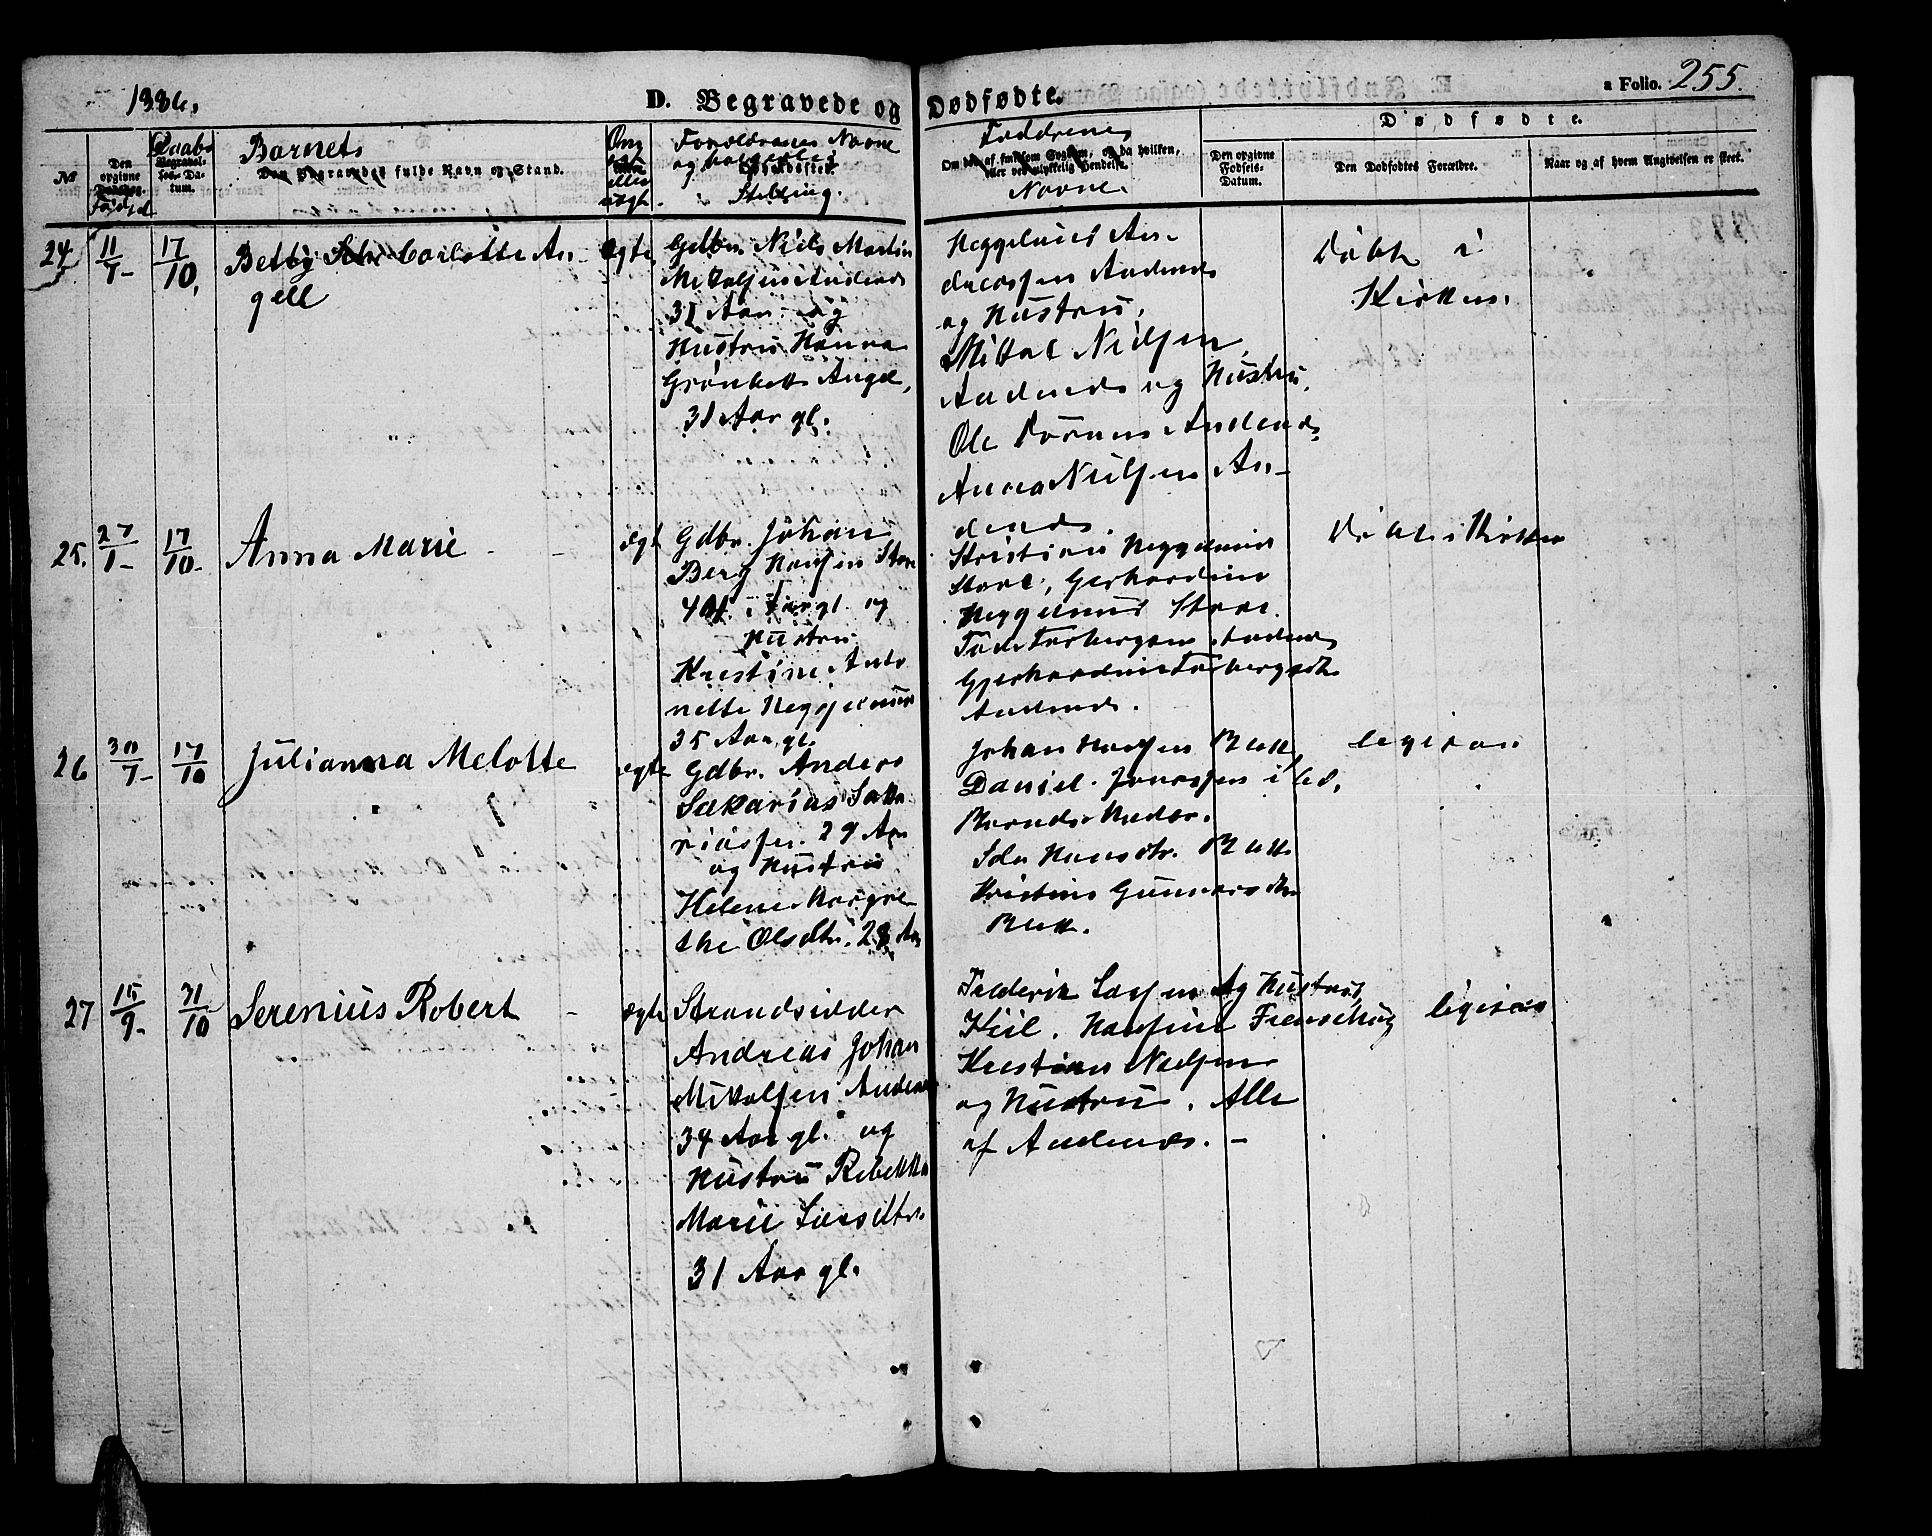 1886.
D. Begravede og Dødfødte.
a Folio. 255.
No
Den opgivne Fødsel
Daabs Datum.
Barnets
Den Begravedes fulde Navn og Stand.
Om ægte eller uægte
Forældrenes Navne og Stilling.
Faddrenes Navne.
Dødfødte.
Den opgivne Fødsels-Datum.
Den Dødfødtes Forældre.
Naar og af hvem Angivelsen er skeet.
24
11/7-
17/10,
Betty Carlotte An-
gell
ægte
Gdbr. Niels Martin
Mikalsen Andenæs
31 Aar og
Hustru Hanna
Grønbeck Angel,
31 Aar gl.
Heggelund An-
dreassen Andenæs
og Hustru,
Mikal Nielsen
Andenæs og Hustru,
Ole Andenæs
Anna Nielsen An-
denæs.
Døbt i
Kirken.
25.
27/1-
17/10-
Anna Marie -
ægt
Gdbr. Johan
Berg Hansen Stave
44 Aar gl. og
Hustru
Kristine Anto
nette Heggelund
35 Aar gl.
Kristian Heggelund
Stave, Gerhardine
Heggelund Stave.
Andenæs
Andenæs.
Døbt i Kirken
26
30/7-
17/10
Julianna Melotte
ægte
Gdbr. Anders
Sakarias Saka
riassen. 29 Aar
og Hustru
Helene Margre
the Olsdtr. 28 Aar
Johan Hansen Blek
Daniel Jonassen ibd.
Barnets Moder.
Ida Hansdtr. Blek
Kristine Gunnarsdtr
Blek.
ligesaa
27
15/9-
31/10
Serenius Robert -
ægte
Strandsidder
Andreas Johan
Mikalsen Andenæs
34 Aar gl. og
Hustru Rebekka
Marie Larsdtr.
31 Aar gl.
Frederik Larsen og Hustru,
Kristian Nielsen
og Hustru. Alle
af Andenæs. -
ligesaa